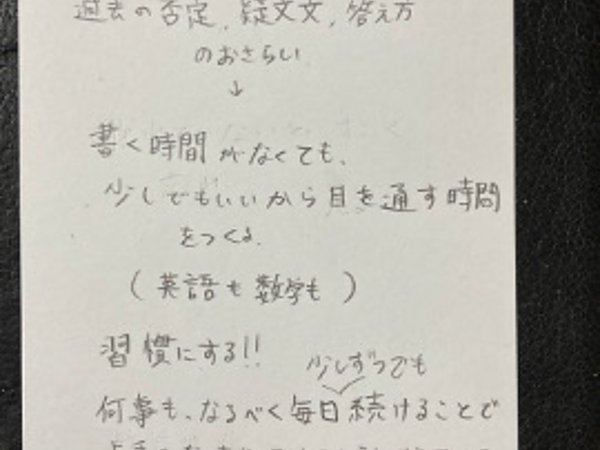 過去の否定、疑文文、答え方
のおさらい
↓
書く時間がなくても、
少しでもいいから目を通す時間
をつくる。
(英語も数学も)
習慣にする!!
少しずつでも
何事も、なるべく毎日続けることで